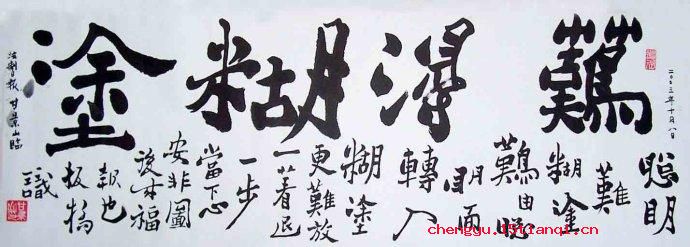 二〇〇三年十月八日
難得糊塗
聰明
難
糊塗
難由聰
明而
轉入
糊塗
更難放
一着退
一步
當下心
安非圖
後來福
報也
板橋
識
法制報 甘景山臨
chengyu.15tianqi.cn